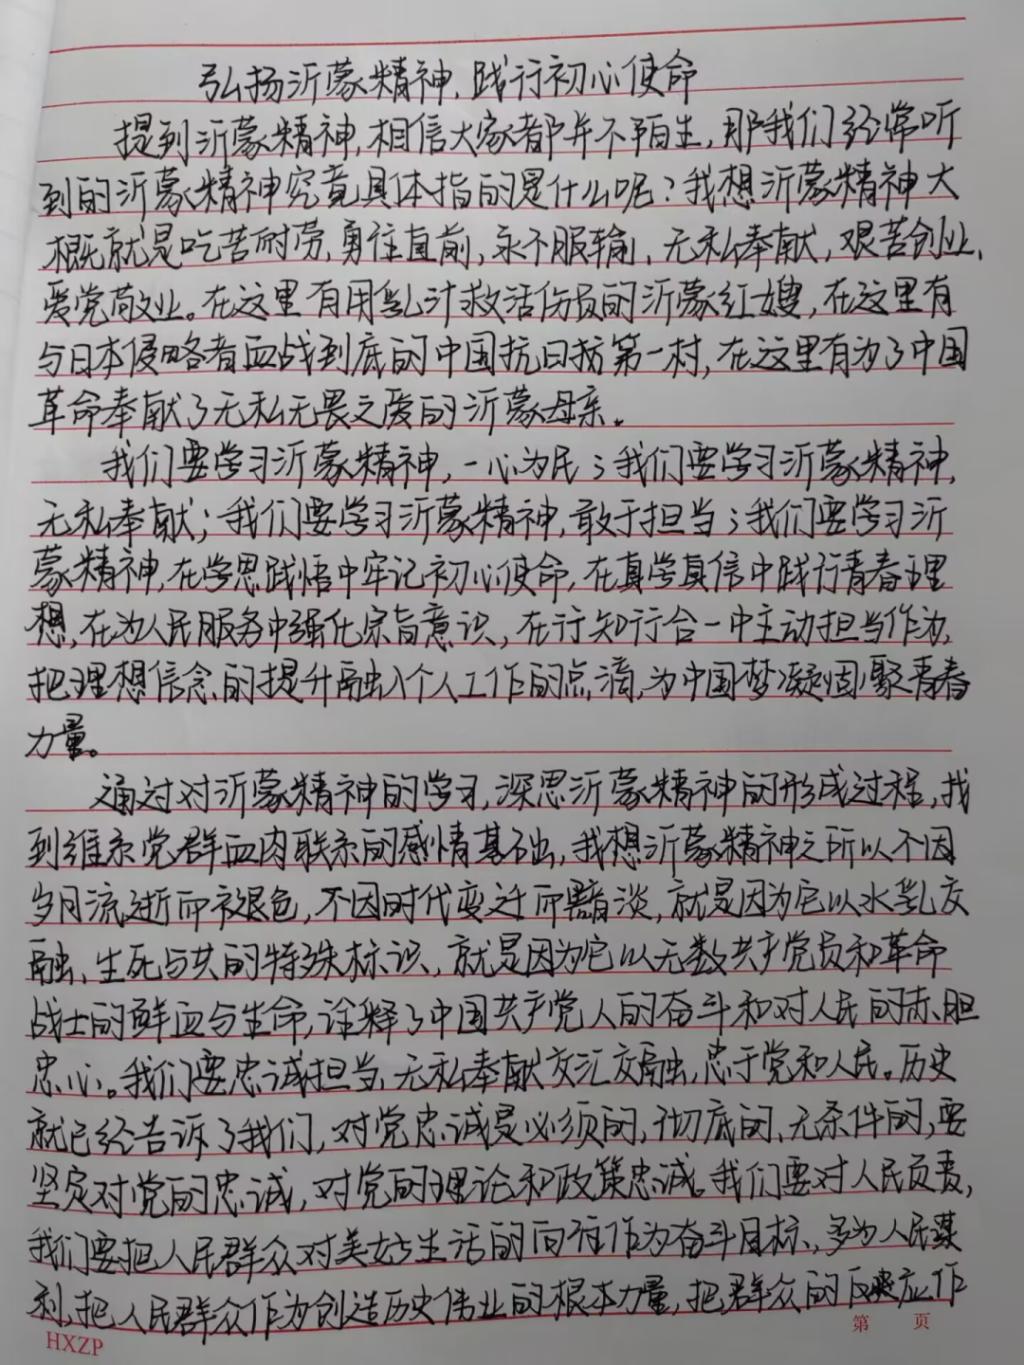 弘扬沂蒙精神，践行初心使命
提到沂蒙精神，相信大家都并不陌生，那我们经常听
到的沂蒙精神究竟具体指的是什么呢？我想沂蒙精神大
概就是吃苦耐劳，勇往直前，永不服输，无私奉献，艰苦创业，
爱党敬业。在这里有用乳汁救活伤员的沂蒙红嫂，在这里有
与日本侵略者血战到底的中国抗日抗第一村，在这里有为了中国
革命奉献了无私无畏之爱的沂蒙母亲。
我们要学习沂蒙精神，一心为民；我们要学习沂蒙精神，
无私奉献；我们要学习沂蒙精神，敢于担当；我们要学习沂
蒙精神，在学思践悟中牢记初心使命，在真学真信中践行青春理
想，在为人民服务中强化宗旨意识，在行知行合一中主动担当作为，
把理想信念的提升融入个人工作的点滴，为中国梦凝固聚青春
力量。
通过对沂蒙精神的学习，深思沂蒙精神的形成过程，找
到维系党群血肉联系的感情基础，我想沂蒙精神之所以不因
岁月流逝而被退色，不因时代变迁而黯淡，就是因为它以水乳交
融、生死与共的特殊标识，就是因为它以无数共产党员和革命
战士的鲜血与生命，诠释了中国共产党人的奋斗和对人民的赤胆
忠心。我们要忠诚担当、无私奉献交汇交融，忠于党和人民。历史
就已经告诉了我们，对党忠诚是必须的，彻底的、无条件的，要
坚定对党的忠诚，对党的理论和政策忠诚。我们要对人民负责，
我们要把人民群众对美好生活的向往作为奋斗目标，多为人民谋
利，把人民群众作为创造历史伟业的根本力量，把群众的反映应作
HXZP 第 页